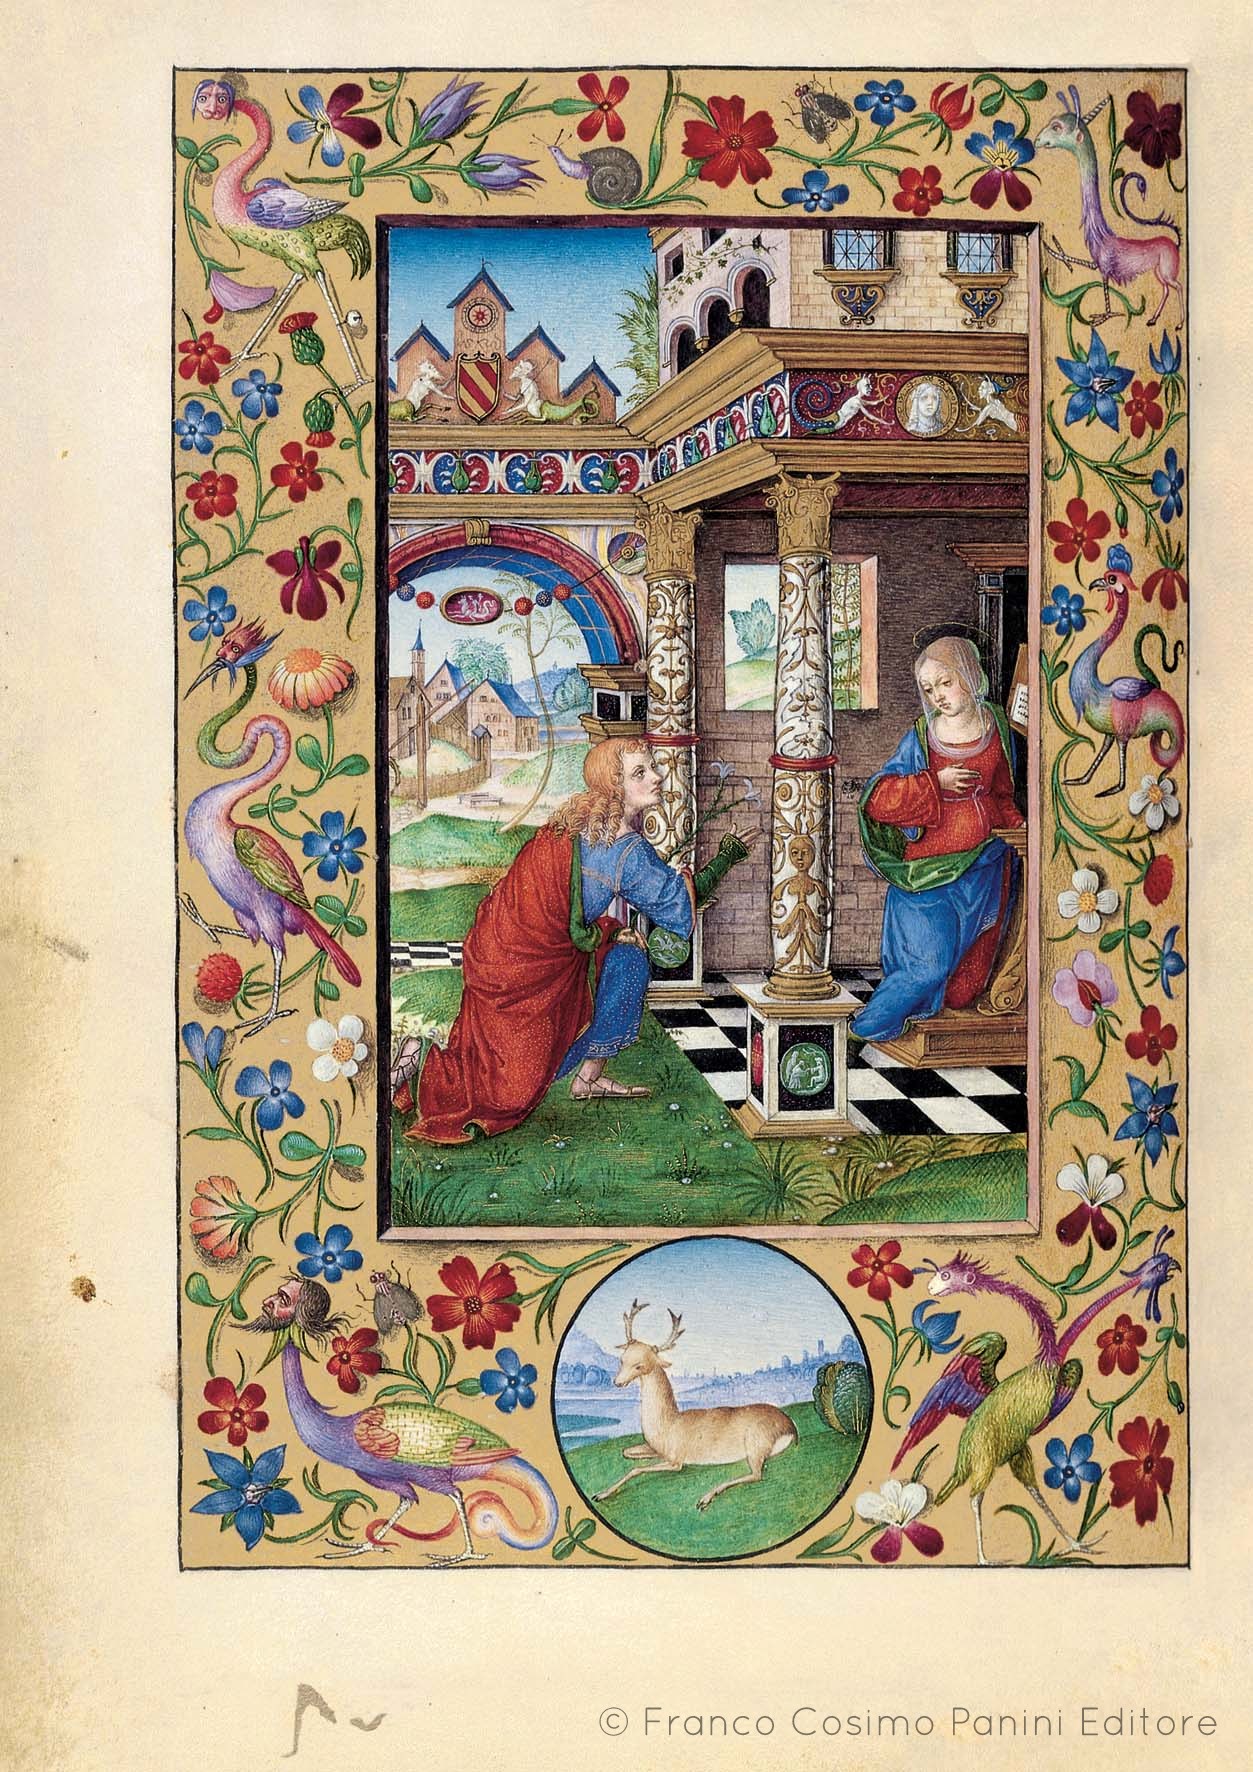 © Franco Cosimo Panini Editore